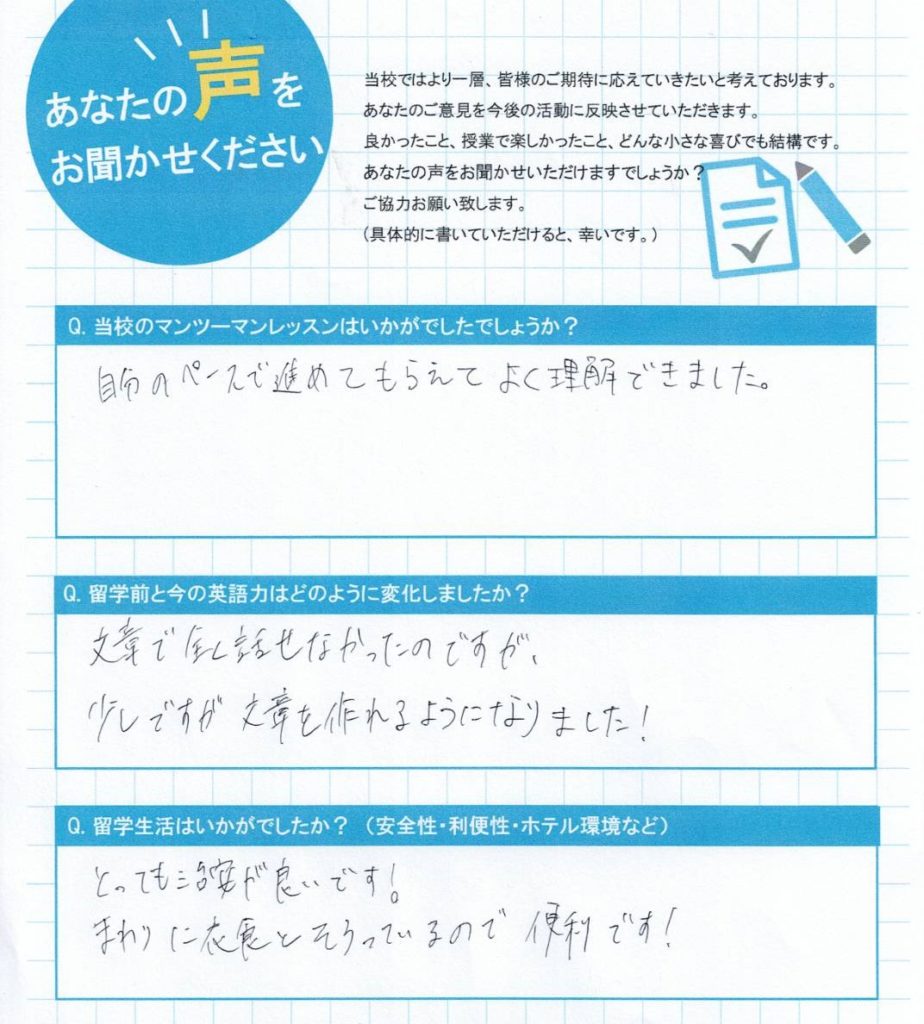 あなたの声を
お聞かせください
当校ではより一層、皆様のご期待に応えていきたいと考えております。
あなたのご意見を今後の活動に反映させていただきます。
良かったこと、授業で楽しかったこと、どんな小さな喜びでも結構です。
あなたの声をお聞かせいただけますでしょうか？
ご協力お願い致します。
（具体的に書いていただけると、幸いです。）
Q. 当校のマンツーマンレッスンはいかがでしたでしょうか？
自分のペースで進めてもらえて よく理解できました。
Q. 留学前と今の英語力はどのように変化しましたか？
文章で全く話せなかったのですが、
少しですが 文章を作れるようになりました！
Q. 留学生活はいかがでしたか？（安全性・利便性・ホテル環境など）
とっても治安が良いです！
まわりに衣食とそろっているので 便利です！